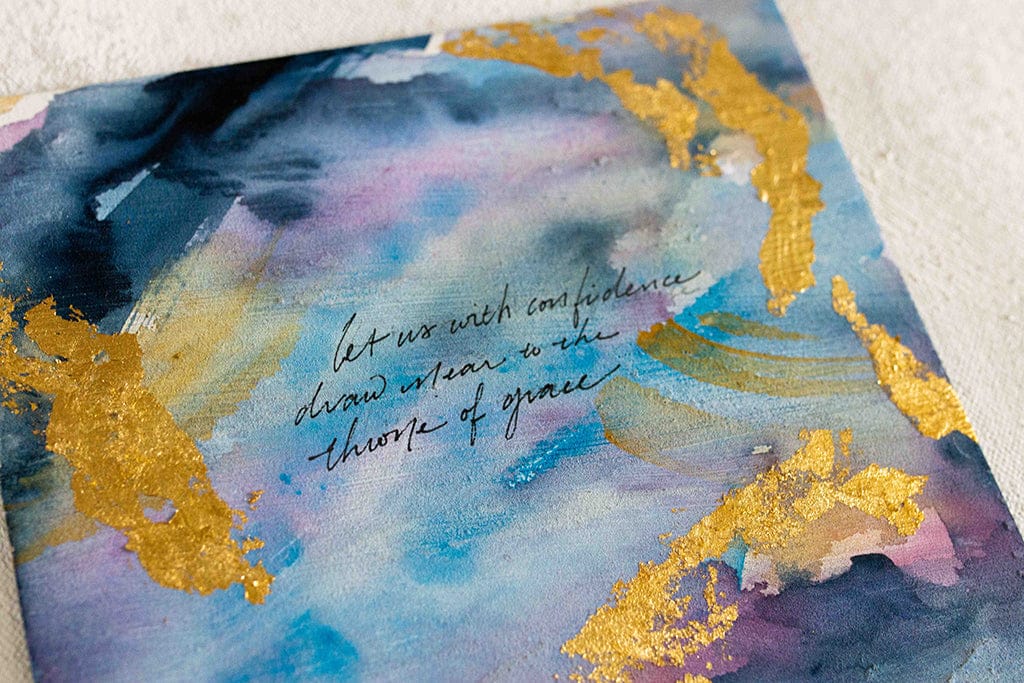 let us with confidence
draw near to the
throne of grace